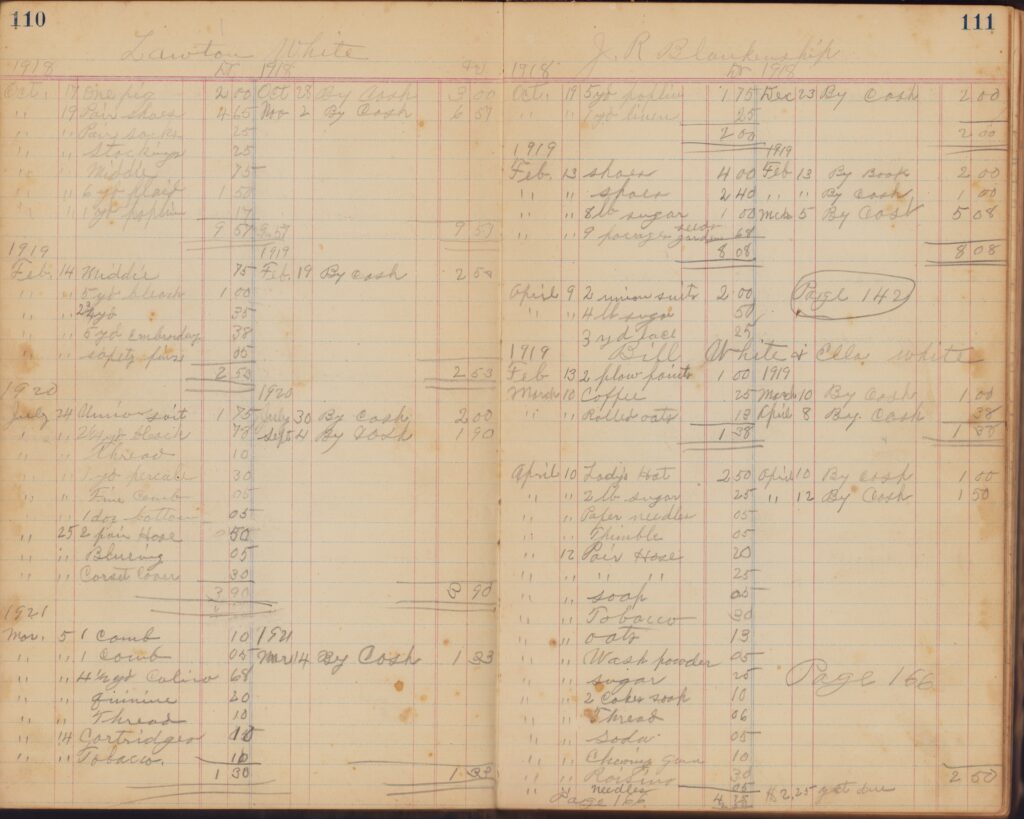 110
Lawton White
1918 Dr 1918 Cr
Oct. 17 One pig 2 00 Oct 28 By Cash 3 00
" 19 Pair shoes 4 65 Nov 2 By Cash 6 57
" " Pair socks 25
" " Stockings 25
" " Middie 75
" " 6 yd plaid 1 50
" " 1 yd poplin 17
9 57 9 57 9 57
1919 1919
Feb. 14 Middie 75 Feb. 19 By Cash 2 53
" " 5 yd bleach 1 00
" " yd 35
" " 5 yd Embroidery 38
" " safety pins 05
2 53 2 53
1920 1920
July 24 Union suit 1 75 July 30 By Cash 2 00
" " 2 1/2 yd bleach 78 Sept 4 By Cash 1 90
" " Thread 10
" " 1 yd percale 30
" " Fine Comb 05
" " 1 doz button 05
" 25 2 pair Hose 50
" " Blueing 05
" " Corset Cover 30
3 90 3 90
1921
Mar. 5 1 Comb 10 1921
" " 1 Comb 05 Mar 14 By Cash 1 33
" " 4 1/2 yd Calico 68
" " Quinine 20
" " Thread 10
" 14 Cartridges 10
" " Tobacco. 10
1 30 1 33
111
J. R Blankenship
1918 Dr 1918
Oct. 19 5 yd poplin 1 75 Dec 23 By Cash 2 00
" " 1 yd linen 25
2 00 2 00
1919 1919
Feb. 13 shoes 4 00 Feb 13 By Book 2 00
" " shoes 2 40 " " By Cash 1 00
" " 8 lb sugar 1 00 Mch 5 By Cash 5 08
" " 9 packages garden seeds 68
8 08 8 08
April 9 2 union suits 2 00 Page 142
" " 4 lb sugar 50
3 yd lace 25
1919 Bill White & Ella White
Feb 13 2 plow points 1 00 1919
March 10 Coffee 25 March 10 By Cash 1 00
" " Rolled oats 13 April 8 By Cash 38
1 38 1 38
April 10 Lady's Hat 2 50 April 10 By Cash 1 00
" " 2 lb sugar 25 " 12 By Cash 1 50
" " Paper needles 05
" " Thimble 05
" 12 Pair Hose 20
" " " " 25
" " soap 05
" " Tobacco 30
" " oats 13
" " Wash powder 05
" " sugar 25 Page 166
" " 2 Cakes soap 10
" " Thread 06
" " Soda 05
" " Chewing Gum 10
" " Raisins 30 2 50
" " needles 05
Page 166 4 75 $2.25 yet due